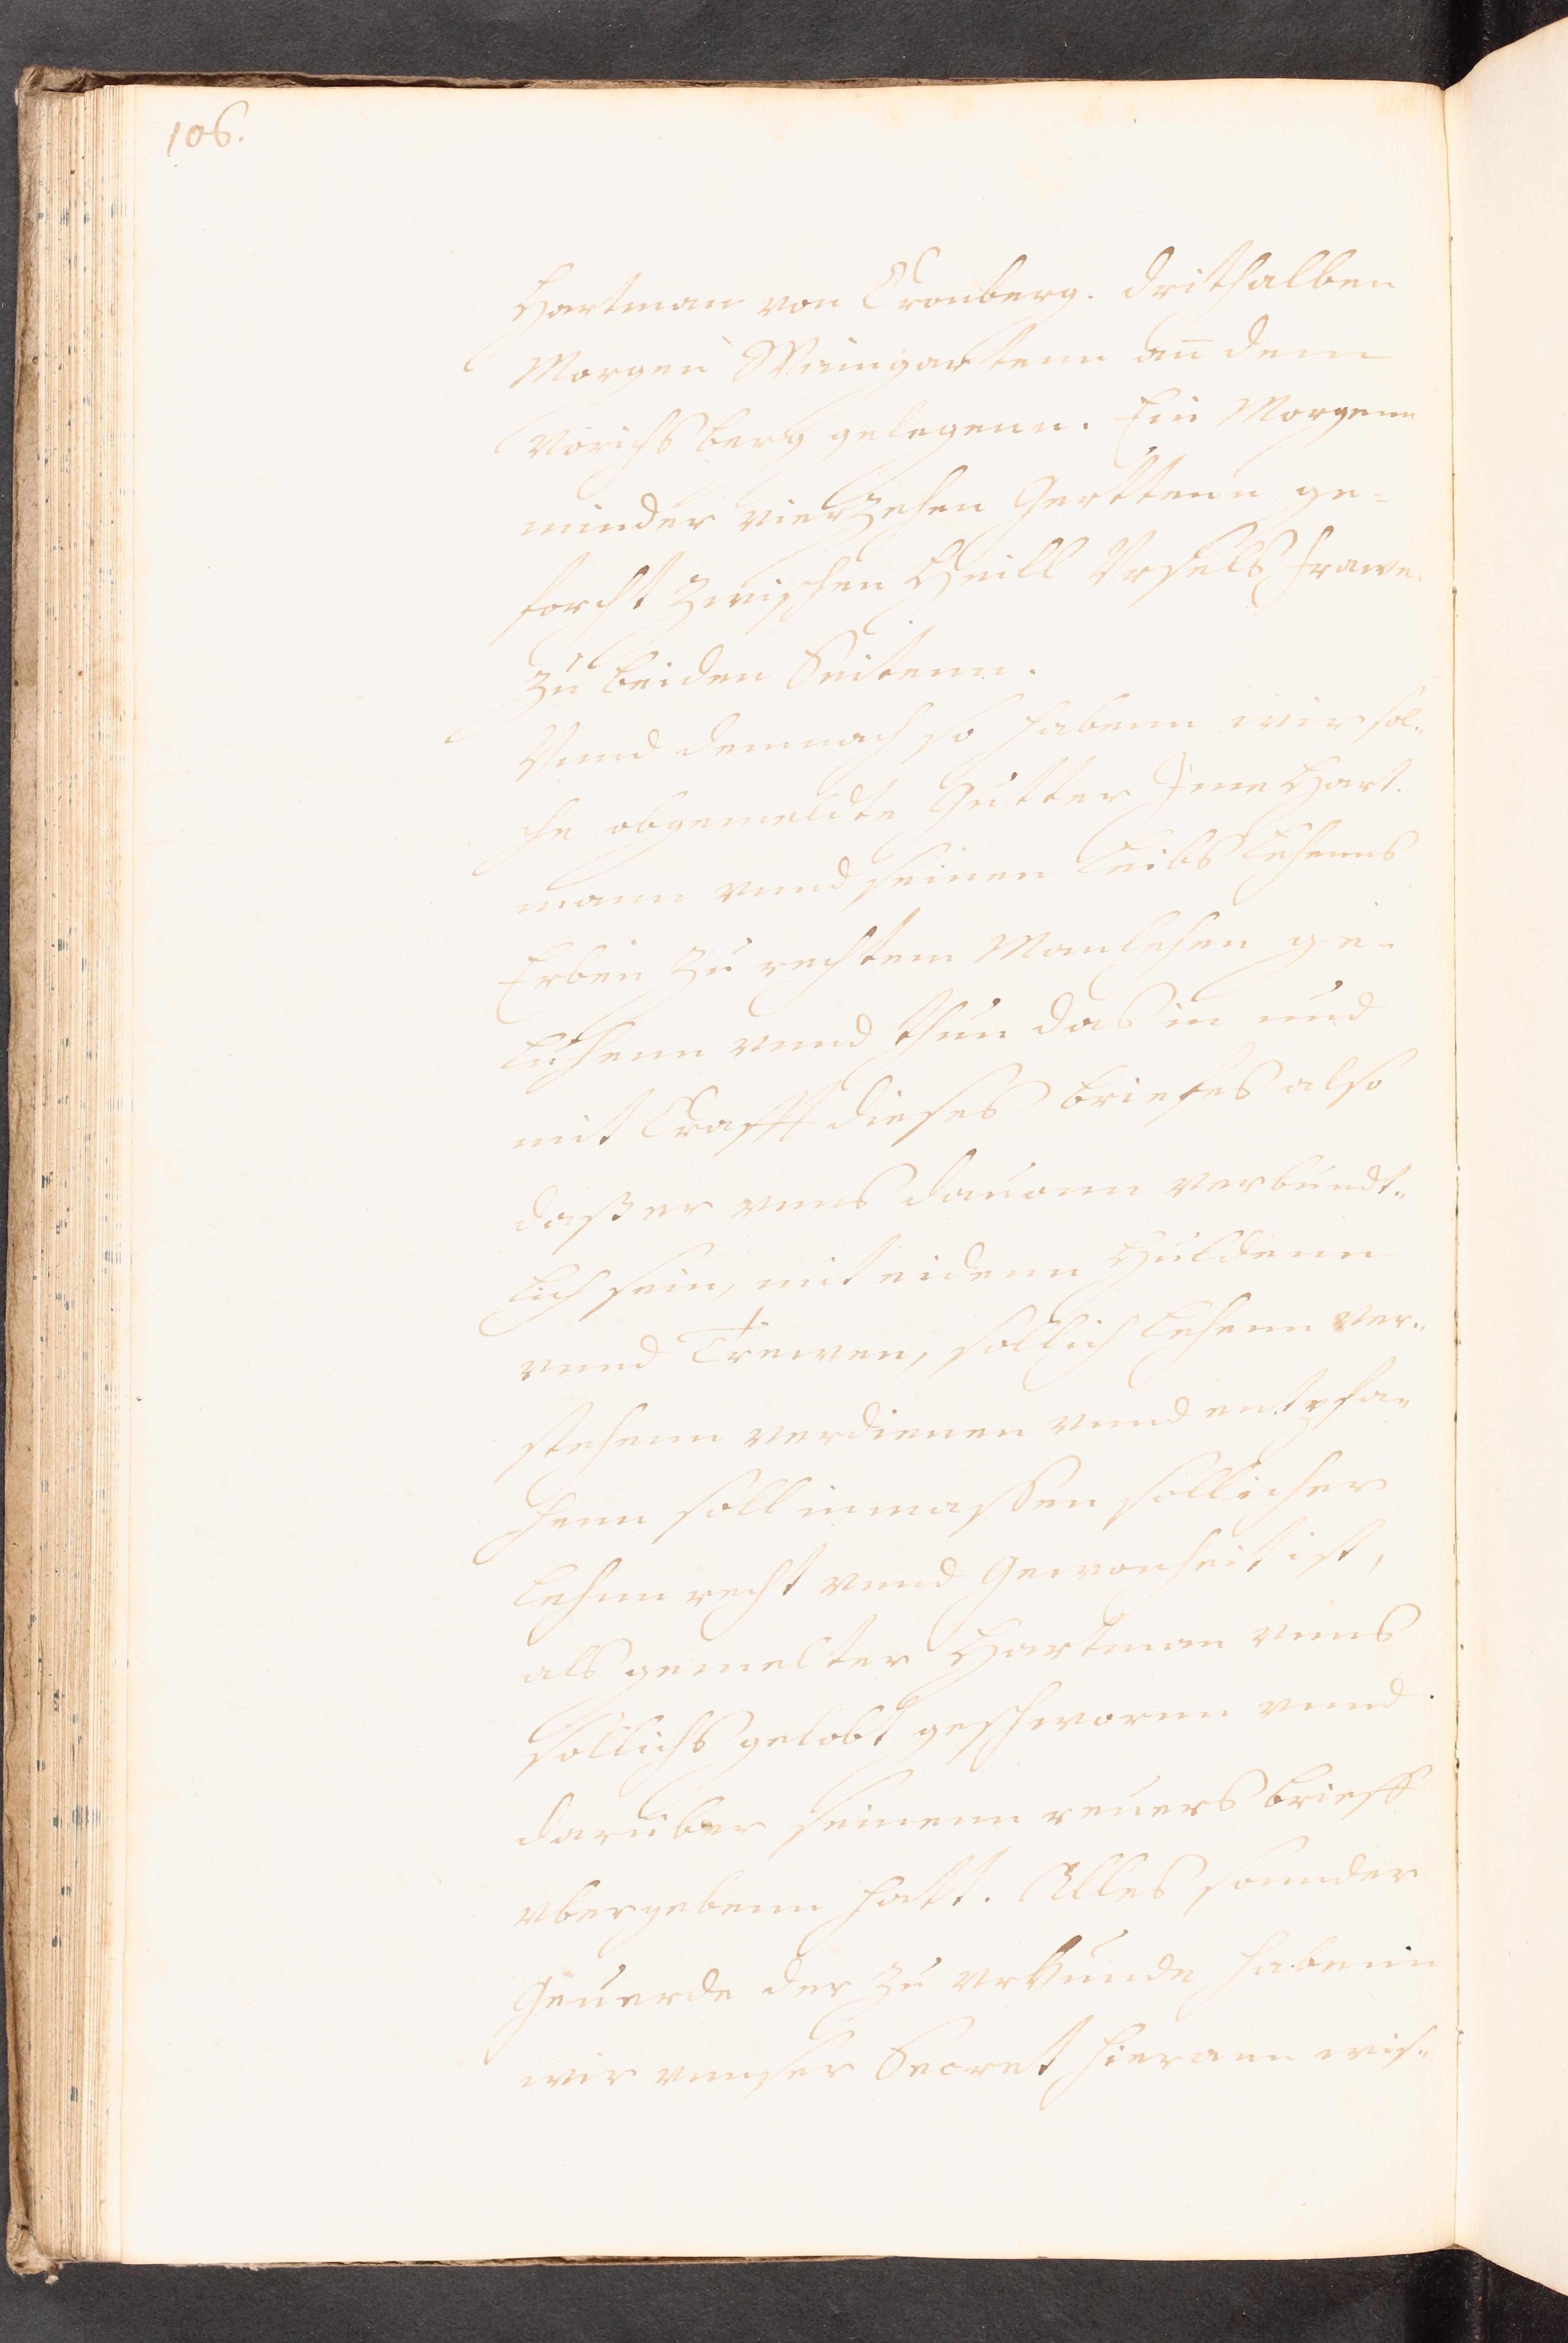 106.
Hartman von Cronberg. drithalben
Morgen Weingartenn an dem
Norichsberg gelegenn. Ein Morgenn
minder vierzehen Gerttenn ge=
forcht zwischen Heill Ursels frawe
zu beiden Seitenn.
Vnnd demnach so habenn wir sol„
che obgemeldte Gutter Jme Hart.
mann vnnd seinen Leibs Lehenns
Erben zu rechtem Manlehen ge„
luhenn vnnd thun das in und
mit Crafft dieses brieffes also
daß er vnns dauonn verbundt„
lich sein, mit eidenn Huldenn
vnnd Trewen, sollich Lehenn ver„
stehenn verdienen vnnd entpfa„
henn soll inmassen sollicher
Lehnn recht vnnd Gewonheit ist,
als gemelter Hartman vnns
sollichs gelobt geschworenn vnnd
daruber seinenn reuers brieff
vbergebenn hatt. Alles sonnder
Geuerde der zu vrkunde habenn
wir vnnser Secret hierann wis„